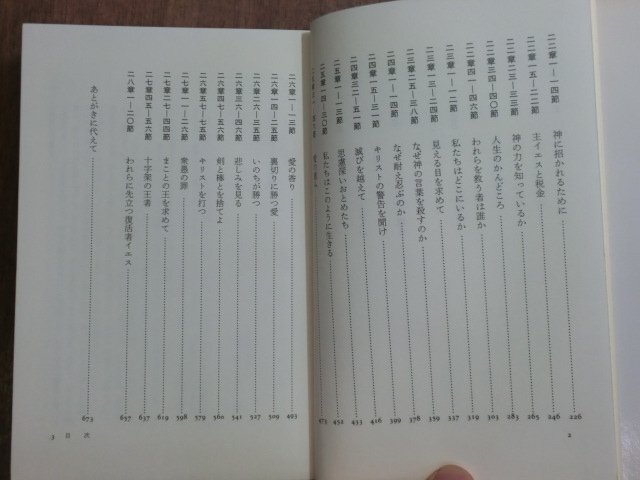 二二章一―一四節 神に招かれるために 226
二二章一五―二二節 主イエスと税金 246
二二章二三―三三節 神の力を知っているか 265
二二章三四―四〇節 人生のかんどころ 283
二二章四一―四六節 われらを救う者は誰か 303
二三章一―一二節 私たちはどこにいるか 319
二三章一三―二四節 見える目を求めて 337
なぜ神の言葉を殺すのか 359
二四章一―一四節 なぜ耐え忍ぶのか 378
キリストの警告を聞け 399
滅びを越えて 416
二五章一―一三節 思慮深いおとめたち 433
二五章一四―三〇節 私たちはこのように生きる 452
473
2
二六章一―一三節 愛の香り 493
二六章一四―二五節 裏切りに勝つ愛 509
いのちが勝つ 527
二六章三六―四六節 悲しみを見る 541
二六章四七―五六節 剣と棒とを捨てよ 560
二六章五七―七五節 キリストを打つ 579
二七章一―二六節 衆愚の罪 598
二七章二七―四四節 まことの王を求めて 619
二七章四五―五六節 十字架の王者 637
二八章一―二〇節 われらに先立つ復活者イエス 657
あとがきに代えて 673
3 目 次